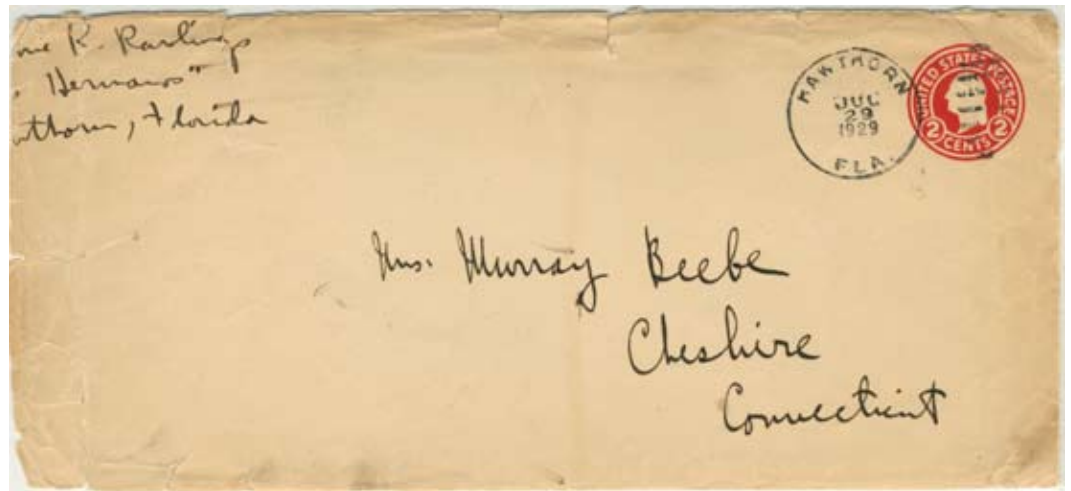 K. Rawlings
Hermanos"
Florida
HAWTHORN
JUL
29
1929
FLA.
UNITED STATES POSTAGE
2 CENTS 2
Mrs. Murray Beebe
Cheshire
Connecticut